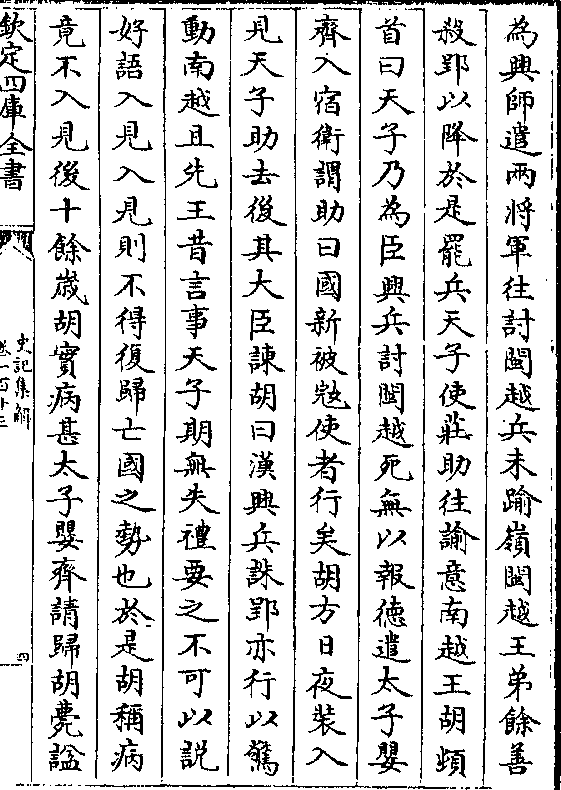 為興師遣兩將軍往討閩越兵未踰嶺閩越王弟餘善
殺郢以降於是罷兵天子使莊助往諭意南越王胡頓
首曰天子乃為臣興兵討閩越死無以報徳遣太子嬰
齊入宿衛謂助曰國新被冦使者行矣胡方日夜裝入
見天子助去後其大臣諫胡曰漢興兵誅郢亦行以驚
動南越且先王昔言事天子期無失禮要之不可以説
好語入見入見則不得復歸亡國之勢也於是胡稱病
竟不入見後十餘嵗胡實病甚太子嬰齊請歸胡薨諡
欽定四庫全書
史記集解
卷一百十三
四